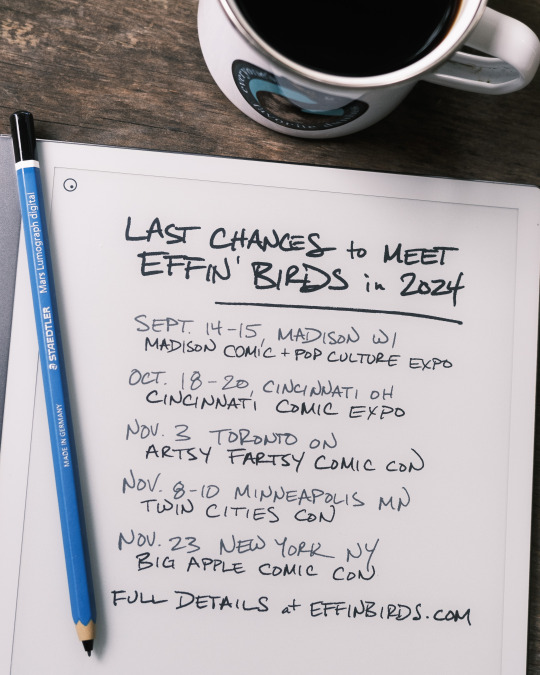 LAST CHANCES to MEET
EFFIN' BIRDS in 2024
SEPT. 14-15, MADISON WI
MADISON COMIC + POP CULTURE EXPO
OCT. 18-20, CINCINNATI OH
CINCINNATI COMIC EXPO
NOV. 3 TORONTO ON
ARTSY FARTSY COMIC CON
NOV. 8-10 MINNEAPOLIS MN
TWIN CITIES CON
NOV. 23 NEW YORK NY
BIG APPLE COMIC CON
FULL DETAILS at EFFINBIRDS.COM
STAEDTLER Mars Lumograph digital
MADE IN GERMANY